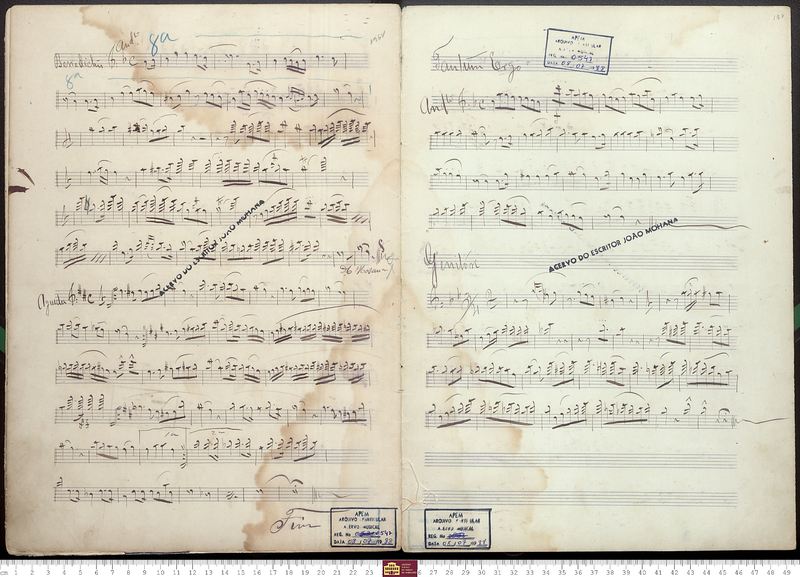 Benedictus
And.te
8a
8a
ACERVO DO ESCRITOR JOÃO MOHANA
Fim
APEM
ARQUIVO PARTICULAR
ACERVO MUSICAL
REG. No 0547
DATA 08/07/1988
Tantum Ergo
APEM
ARQUIVO PARTICULAR
REG. No 0543
DATA 08.07.1988
ACERVO DO ESCRITOR JOÃO MOHANA
Genitori
APEM
ARQUIVO PARTICULAR
ACERVO MUSICAL
REG. No
DATA 08/07/1988
cm 1 2 3 4 5 6 7 8 9 10 11 12 13 14 15 16 17 18 19 20 21 22 23 27 28 29 30 31 32 33 34 35 36 37 38 39 40 41 42 43 44 45 46 47 48 49